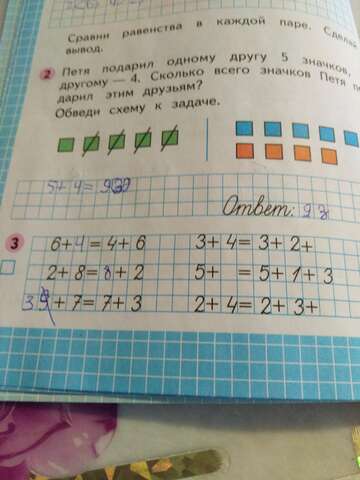 Сравни равенства в каждой паре. Сдела
вывод.
2 Петя подарил одному другу 5 значков,
другому — 4. Сколько всего значков Петя по
дарил этим друзьям?
Обведи схему к задаче.
5+4=9
Ответ: 9 з
3
6+4=4+6 3+4=3+2+
2+8=8+2 5+ =5+1+3
3+7=7+3 2+4=2+3+